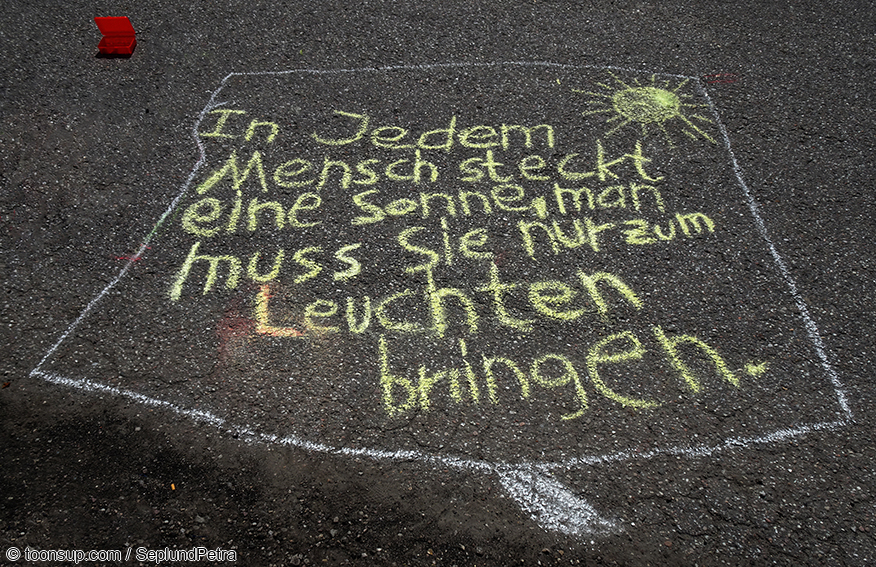 In Jedem
Mensch steckt
eine Sonne, man
muss sie nur zum
Leuchten
bringen.
© toonsup.com / SeplundPetra